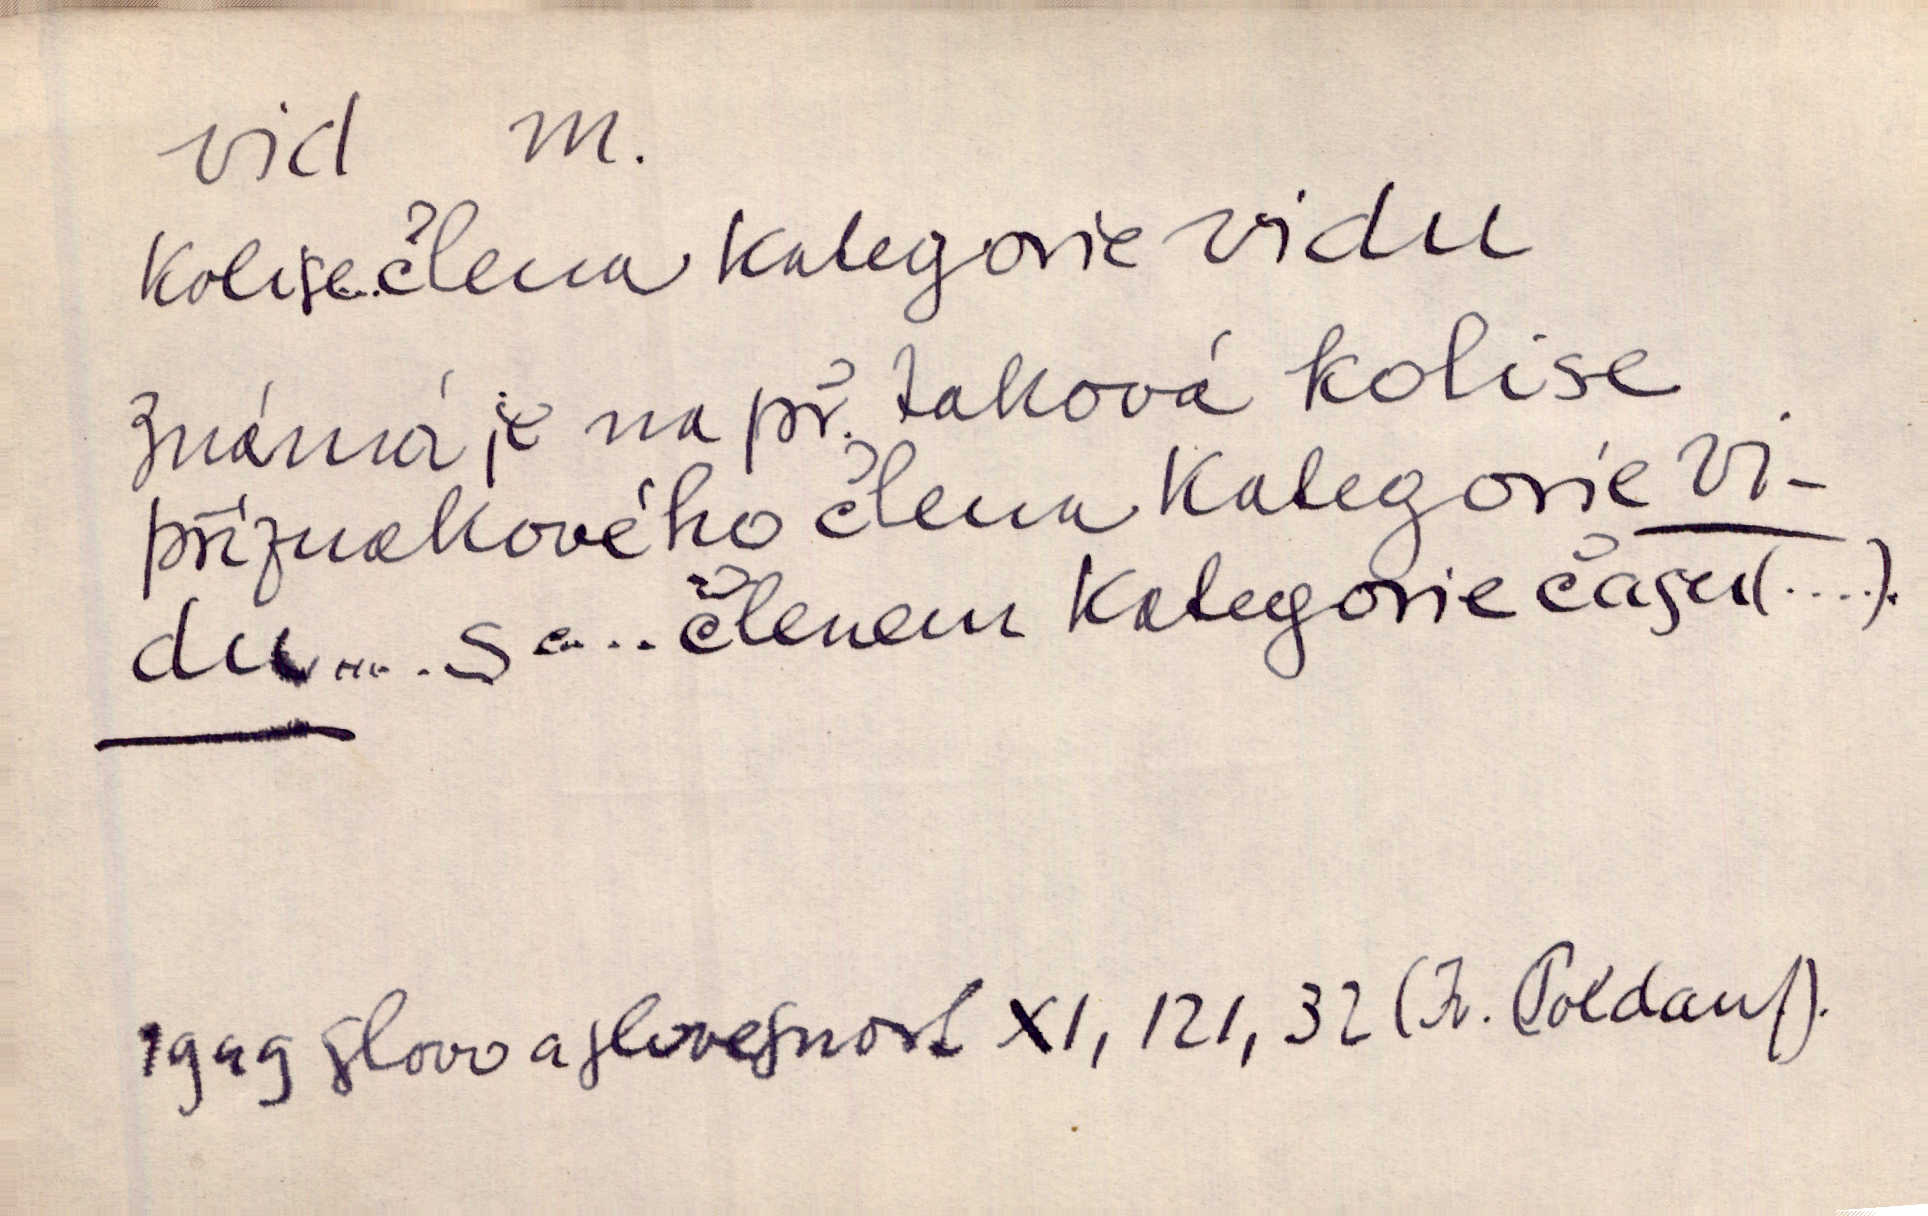 vid m.
Kolise..člena kategorie vidu
Známá je na př. taková kolise
příznakového člena kategorie vi-
du.... s .... členem kategorie času(....).
1949 Slovo a slovesnost XI, 121, 32 (Poldauf).